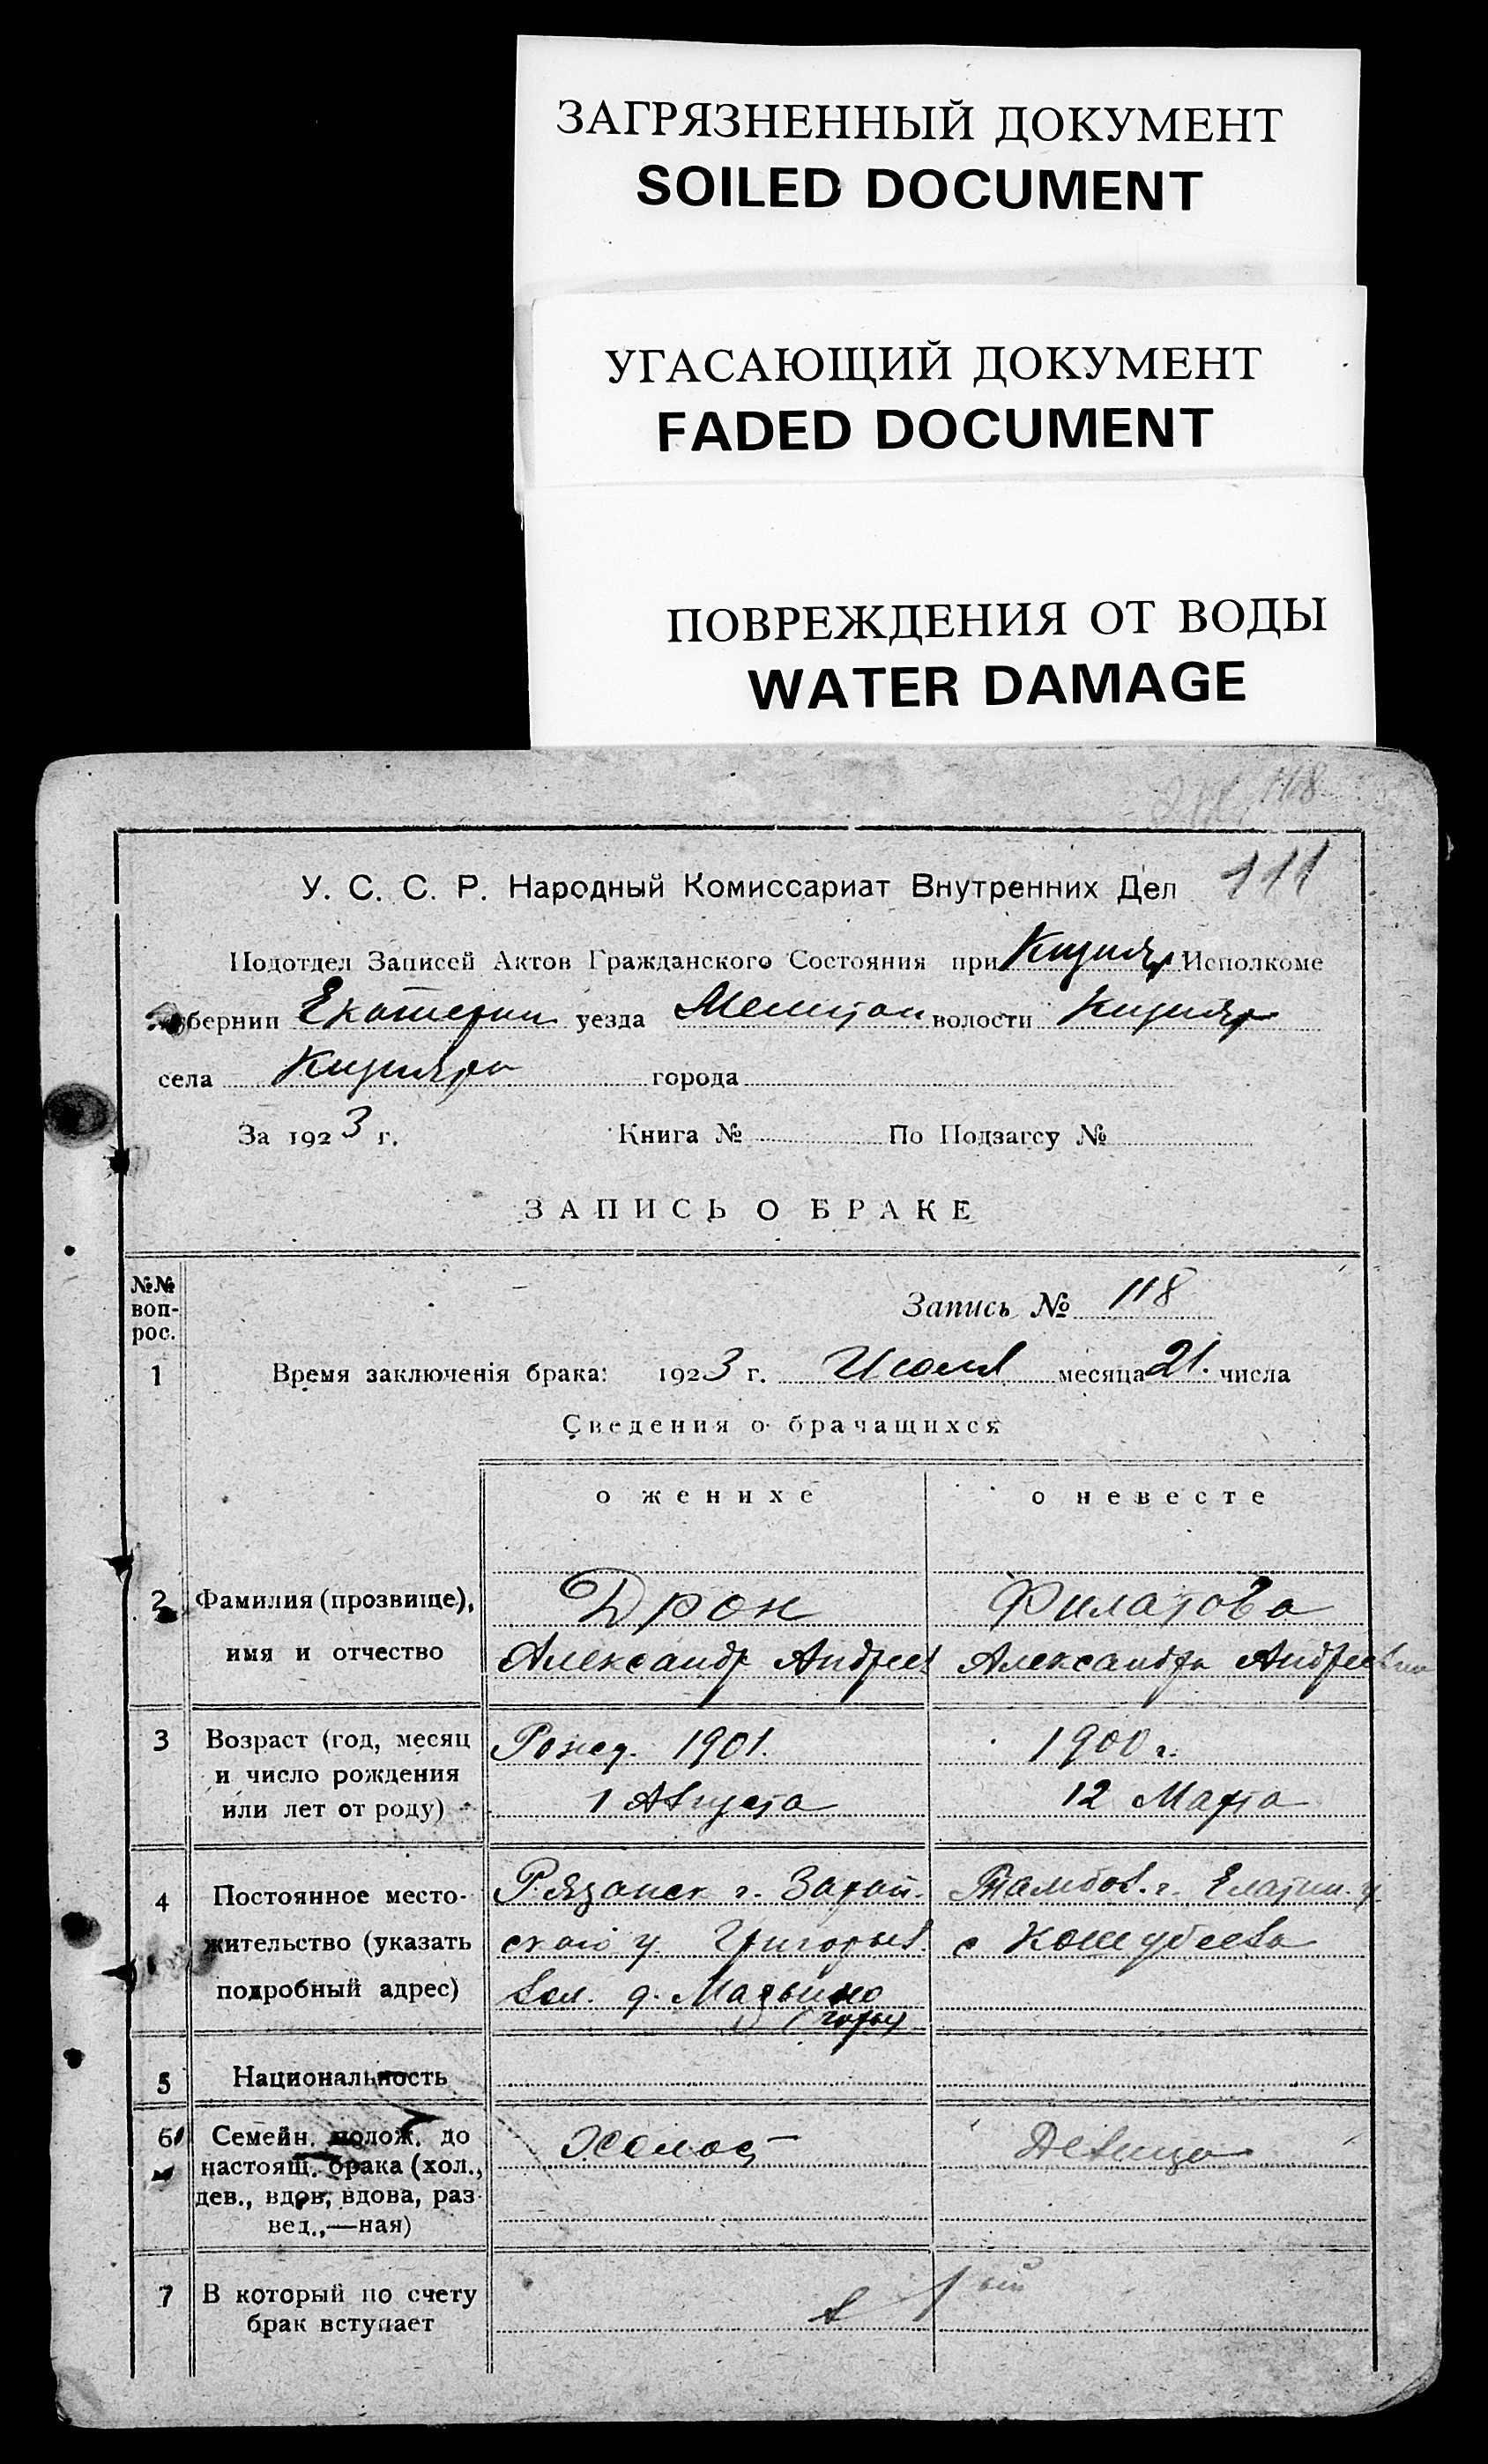 ЗАГРЯЗНЕННЫЙ ДОКУМЕНТ
SOILED DOCUMENT
УГАСАЮЩИЙ ДОКУМЕНТ
FADED DOCUMENT
ПОВРЕЖДЕНИЯ ОТ ВОДЫ
WATER DAMAGE
118
111
У. С. С. Р. Народный Комиссариат Внутренних Дел
Подотдел Записей Актов Гражданского Состояния при Кизияр Исполкоме
губернии Екатерин уезда Мелитоп волости Кизияр
села Кизияра города
За 1923 г. Книга № По Подзагсу №
ЗАПИСЬ О БРАКЕ
№№ воп- рос.
Запись № 118
1 Время заключенія брака: 1923 г. Июля месяца 21. числа
Сведения о брачащихся
о женихе о невесте
2 Фамилия (прозвище), Дрон Филатова
имя и отчество Александр Андреев Александра Андреевна
3 Возраст (год, месяц Рожд. 1901. 1900 г.
и число рождения
или лет от роду) 1 Августа 12 Марта
4 Постоянное место- Рязанск г. Зарай- Тамбов. г. Елатом. у.
жительство (указать ского у. Григорьев. с Кошубеева
подробный адрес) вол. д. Марьино
(горы)
5 Национальность
6 Семейн. полож. до Холост Девица
настоящ. брака (хол.,
дев., вдов, вдова, раз-
вед.,—ная)
7 В который по счету в 1ый
брак вступает